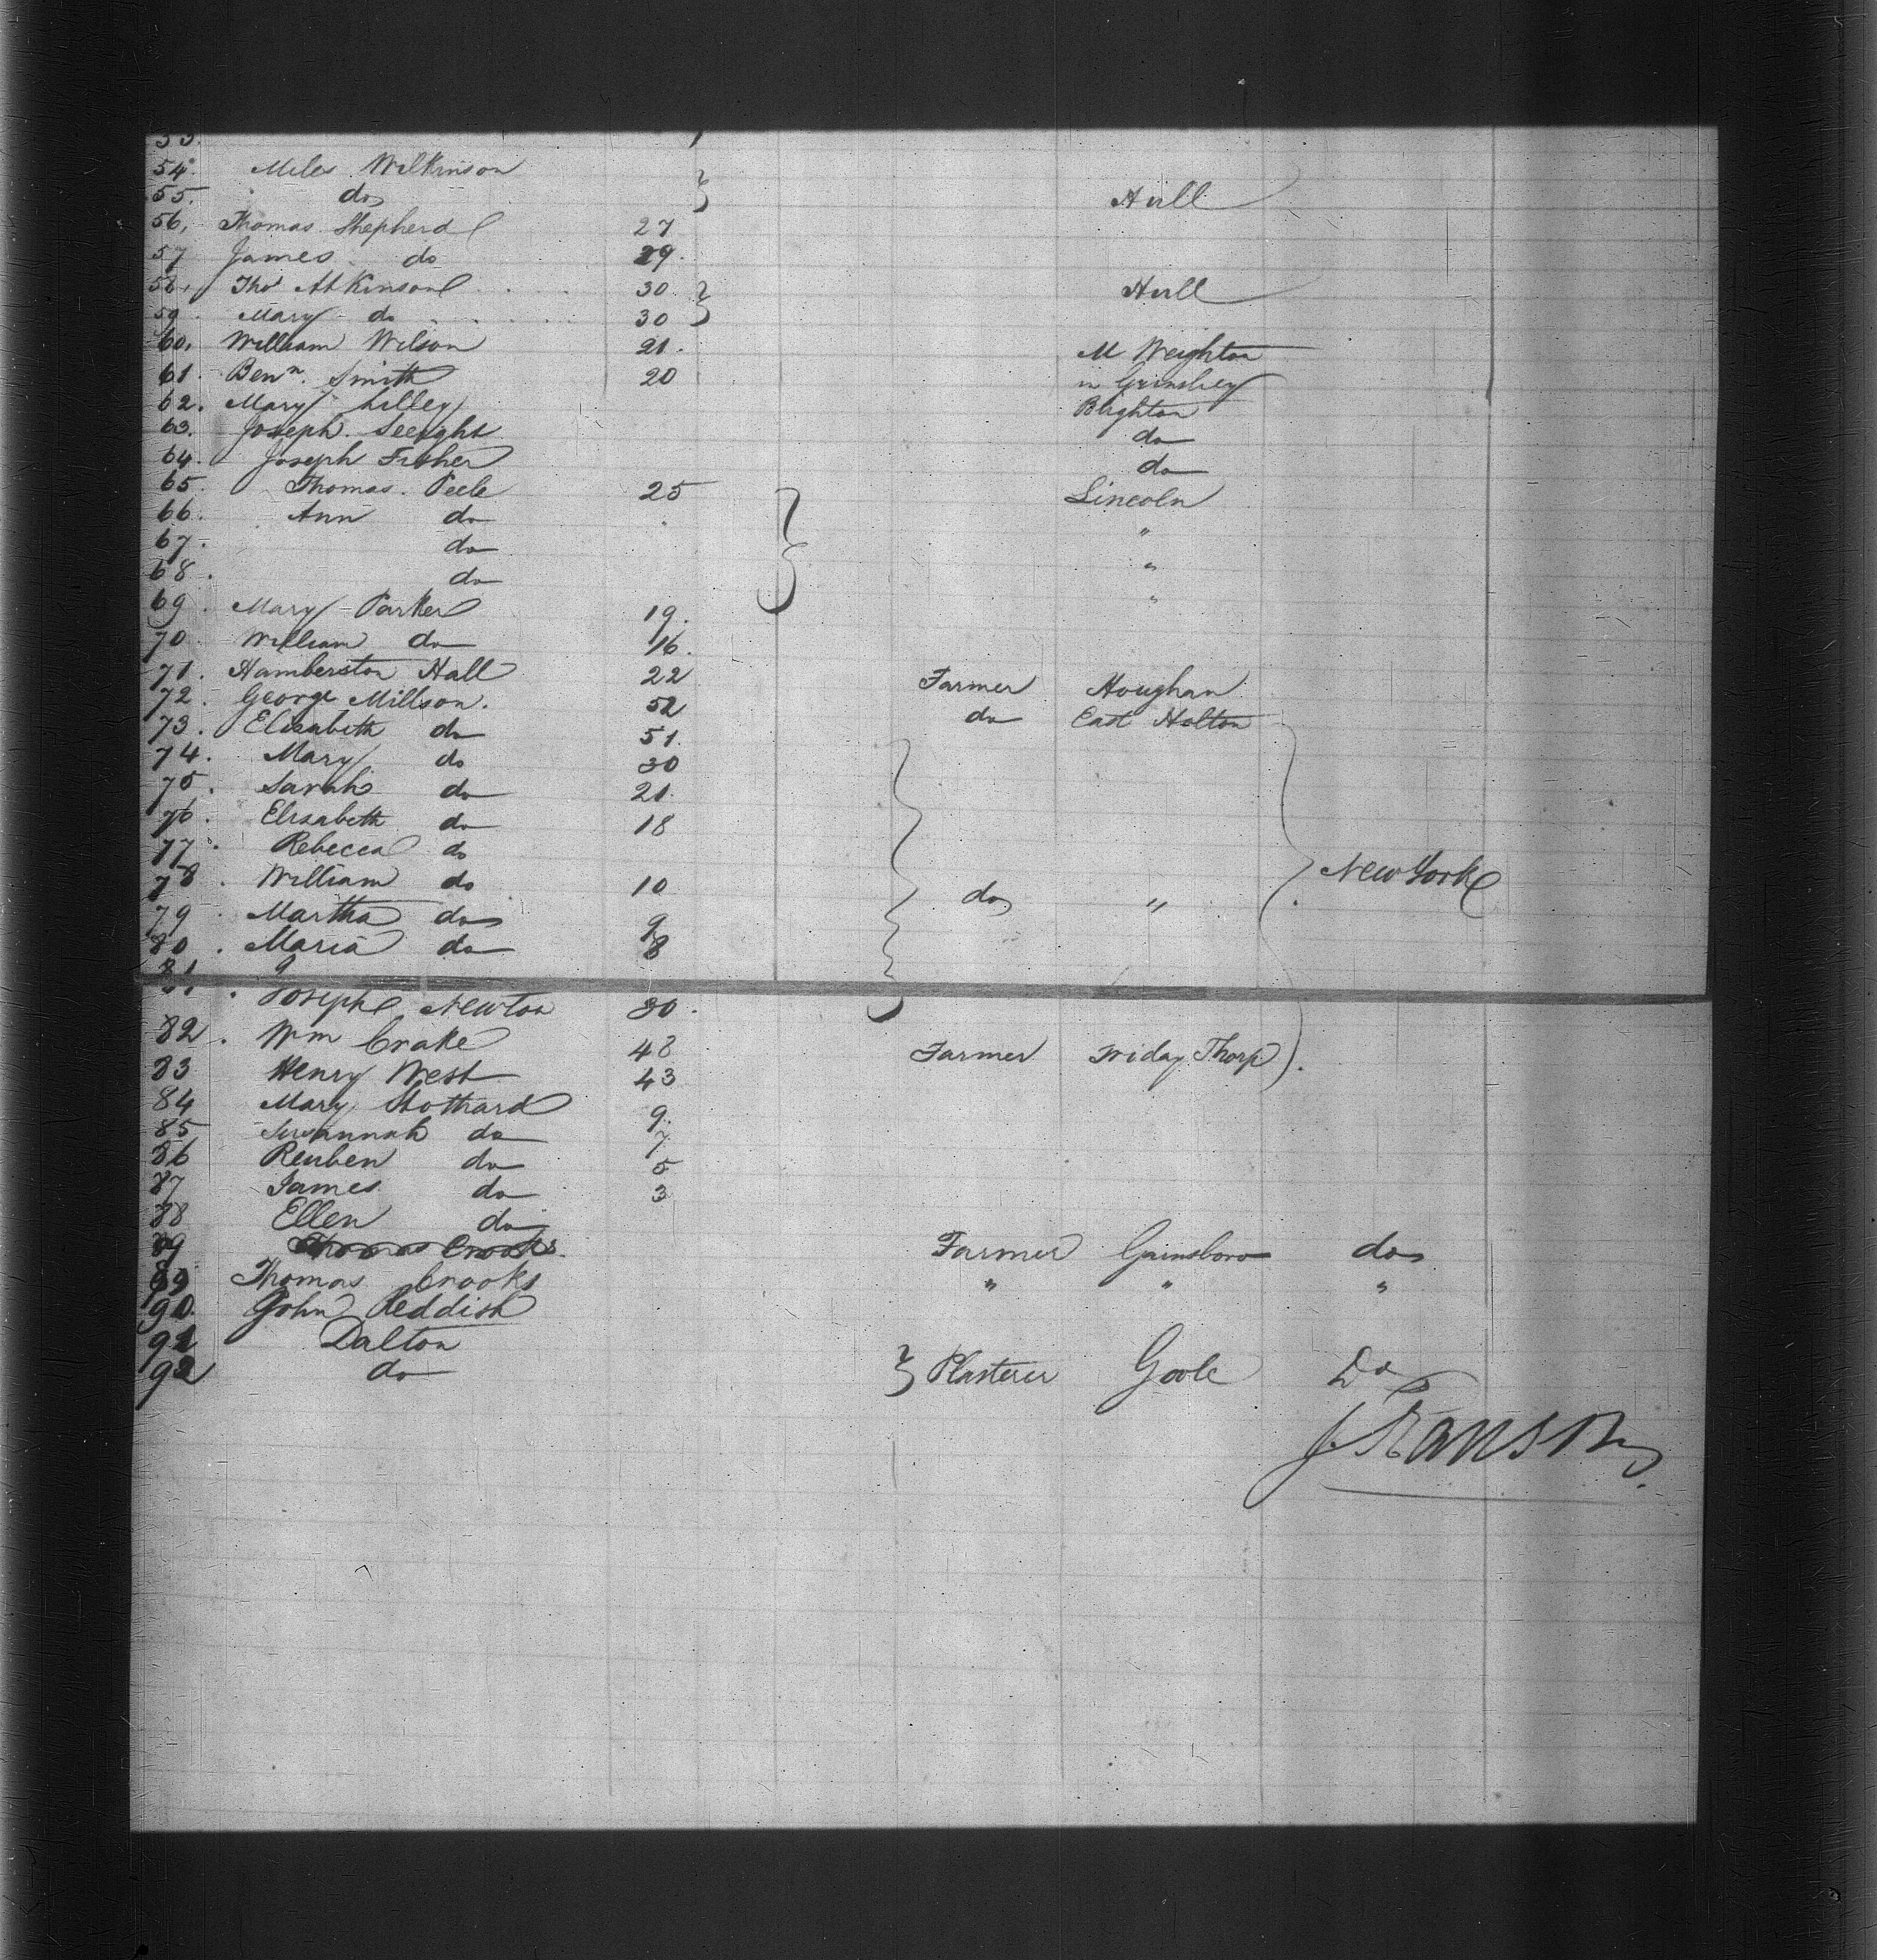 53.
54. Miles Wilkinson
55. do } Hull
56. Thomas Shepherd 27
57 James do 29.
58. Thos Atkinson 30 } Hull
59. Mary do 30
60. William Wilson 21. M Weighton
61. Benn. Smith 20 in Grimsbey
62. Mary Lilley Blighton
63. Joseph. do
64. Joseph Fisher do
65. Thomas. Peele 25 Lincoln
66. Ann do "
67. do "
68. do "
69. Mary Parker 19.
70 William do 16.
71. Hamberston Hall 22 Farmer Houghan
72. George Millson. 52 do East Holton
73. Elizabeth do 51.
74. Mary do 30
75. Sarah do 21.
76. Elisabeth do 18
77 Rebecca do
78. William do 10 do " New York
79. Martha do 9
80. Maria do 8
81. Joseph Newton 30.
82. Wm Crake 48 Farmer Friday Thorp
83 Henry West 43
84 Mary Stothard 9.
85 Susannah do 7
86 Reuben do 5
87 James do 3
88 Ellen do
89 Thomas Crooks. Farmer Gainsboro do
89 Thomas Crooks " " "
90. John Reddish
91 Dalton
92 do } Plasterer Goole Do